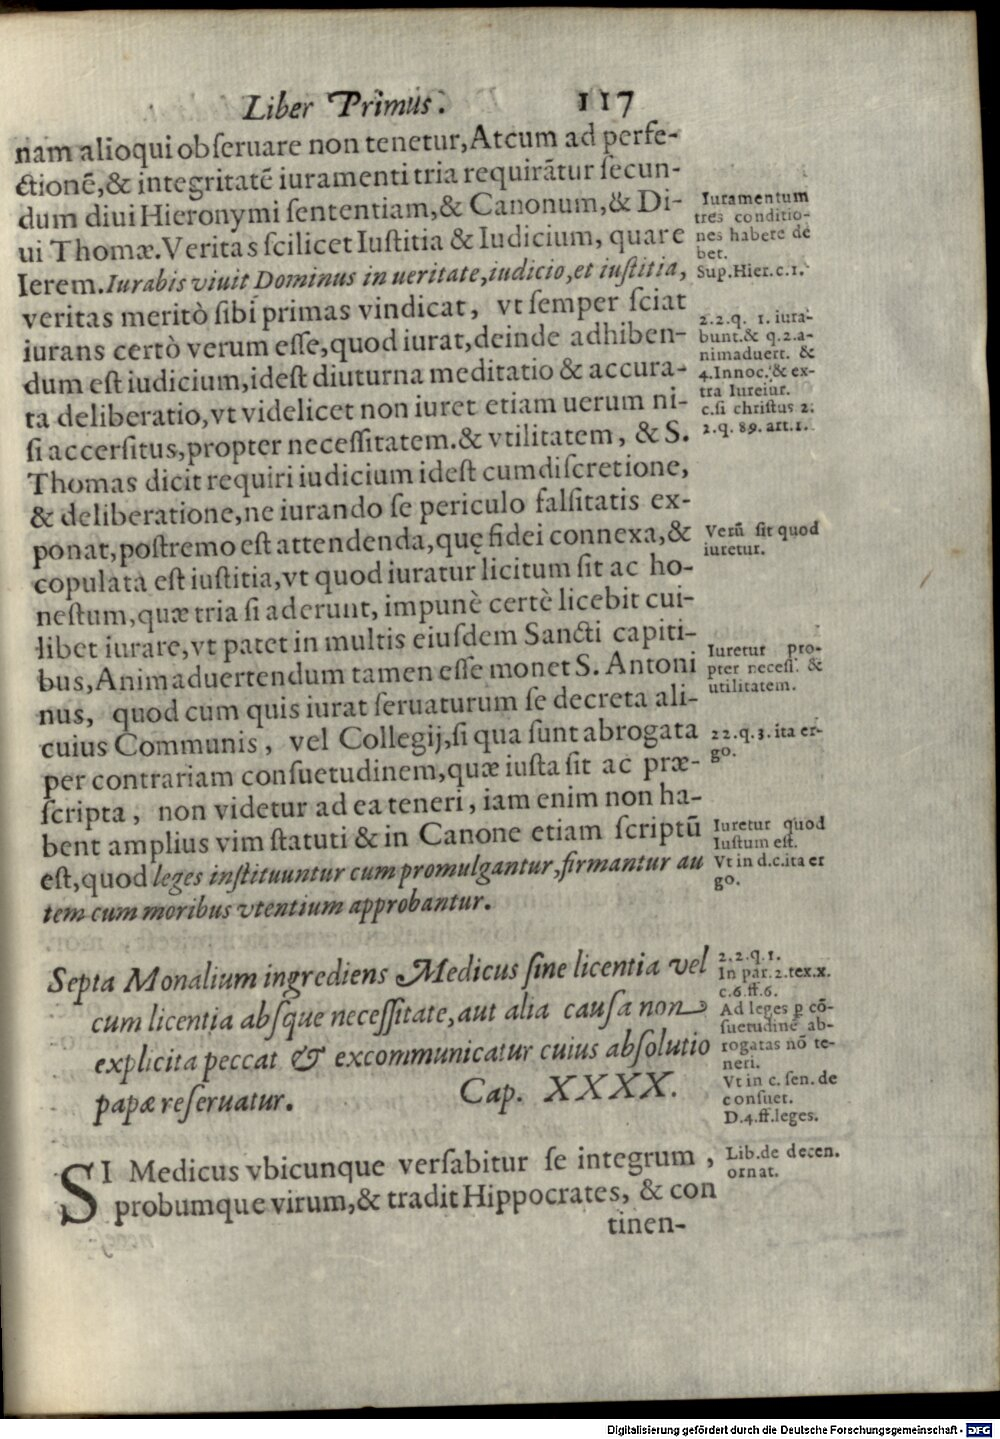 Liber Primus. 117
nam alioqui obseruare non tenetur, Atcum ad perfe-
ctionē,& integritatē iuramenti tria requirātur secun-
dum diui Hieronymi sententiam,& Canonum,& Di-
ui Thomæ.Veritas scilicet Iustitia & Iudicium, quare
Ierem.Iurabis viuit Dominus in ueritate,iudicio,et iustitia,
veritas meritò sibi primas vindicat, vt semper sciat
iurans certò verum esse,quod iurat,deinde adhiben-
dum est iudicium,idest diuturna meditatio & accura-
ta deliberatio,vt videlicet non iuret etiam uerum ni-
si accersitus,propter necessitatem.& vtilitatem, & S.
Thomas dicit requiri iudicium idest cum discretione,
& deliberatione,ne iurando se periculo falsitatis ex-
ponat,postremo est attendenda,quę fidei connexa,&
copulata est iustitia,vt quod iuratur licitum sit ac ho-
nestum,quæ tria si aderunt, impunè certè licebit cui-
libet iurare,vt patet in multis eiusdem Sancti capiti-
bus,Animaduertendum tamen esse monet S. Antoni
nus, quod cum quis iurat seruaturum se decreta ali-
cuius Communis, vel Collegij,si qua sunt abrogata
per contrariam consuetudinem,quæ iusta sit ac præ-
scripta, non videtur ad ea teneri, iam enim non ha-
bent amplius vim statuti & in Canone etiam scriptū
est,quod leges instituuntur cum promulgantur,firmantur au
tem cum moribus vtentium approbantur.
Septa Monalium ingrediens Medicus sine licentia vel
cum licentia absque necessitate,aut alia causa non
explicita peccat & excommunicatur cuius absolutio
papæ reseruatur. Cap. XXXX.
SI Medicus vbicunque versabitur se integrum,
probumque virum,& tradit Hippocrates, & con
tinen-
Iuramentum
tres conditio-
nes habere de
bet.
Sup.Hier.c.1.
2.2.q. 1. iura-
bunt.& q.2.a-
nimaduert. &
4.Innoc.& ex-
tra Iureiur.
c.si christus 2.
2.q. 89. art.1.
Verū sit quod
iuretur.
Iuretur pro-
pter necess. &
utilitatem.
22.q.3.ita er-
go.
Iuretur quod
Iustum est.
Vt in d.c.ita er
go.
2.2.q.1.
In par.2.tex.x.
c.6.ff.6.
Ad leges p cō-
suetudinē ab-
rogatas nō te-
neri.
Vt in c. sen. de
consuet.
D.4.ff.leges.
Lib.de decen.
ornat.
Digitalisierung gefördert durch die Deutsche Forschungsgemeinschaft - DFG